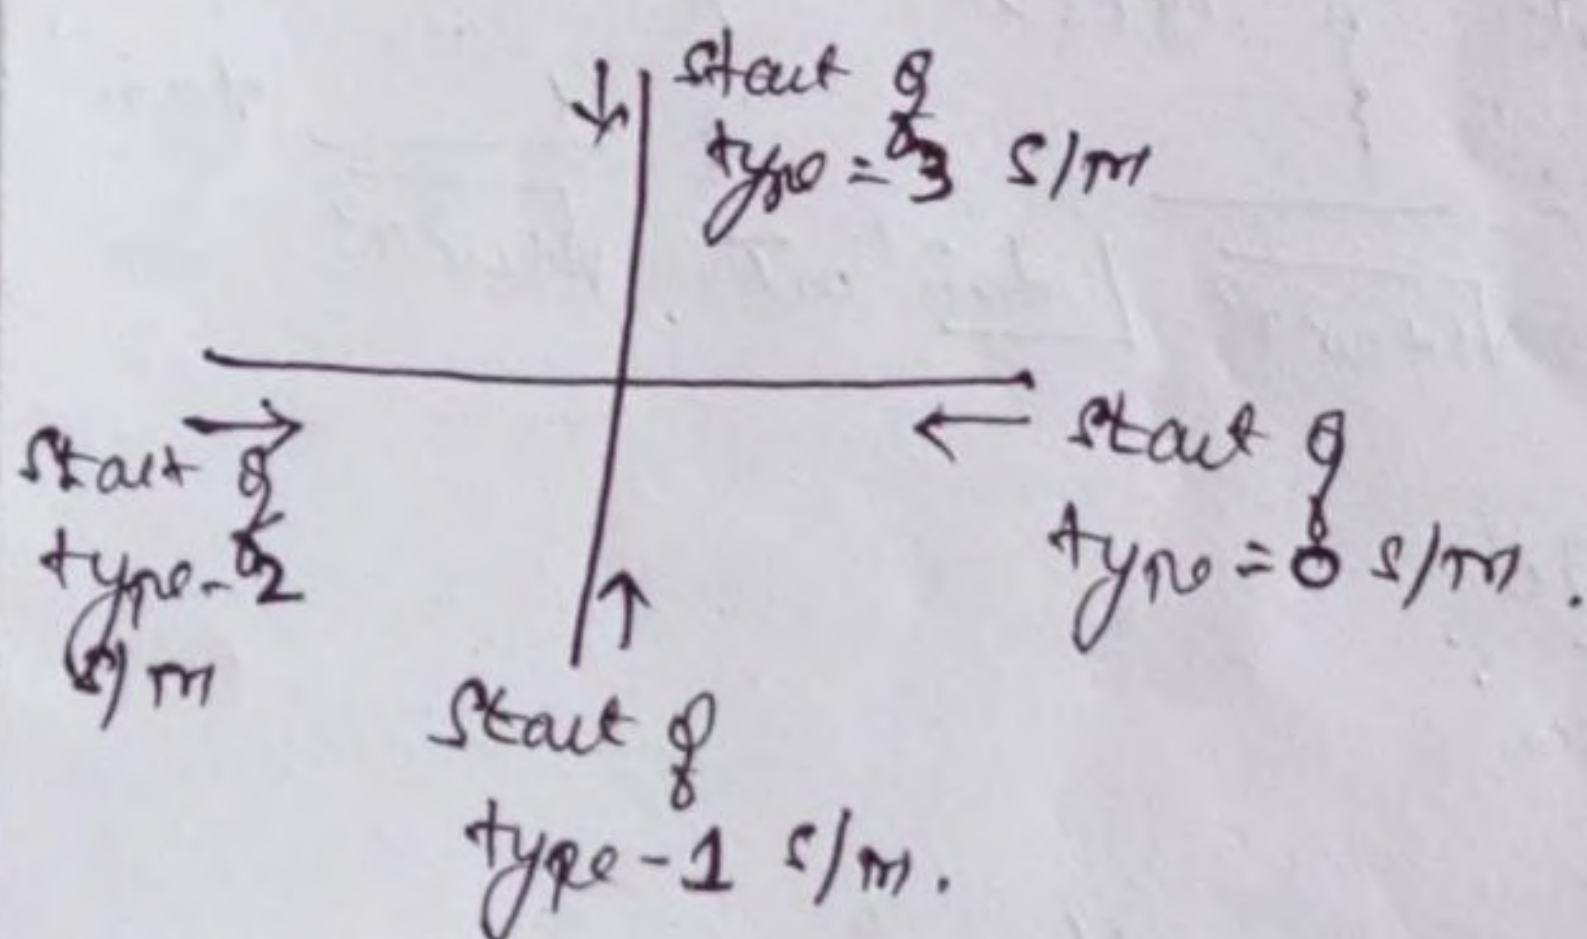 Start of
type = 3 s/m
Start of
type - 2
s/m
Start of
type = 0 s/m.
Start of
type - 1 s/m.